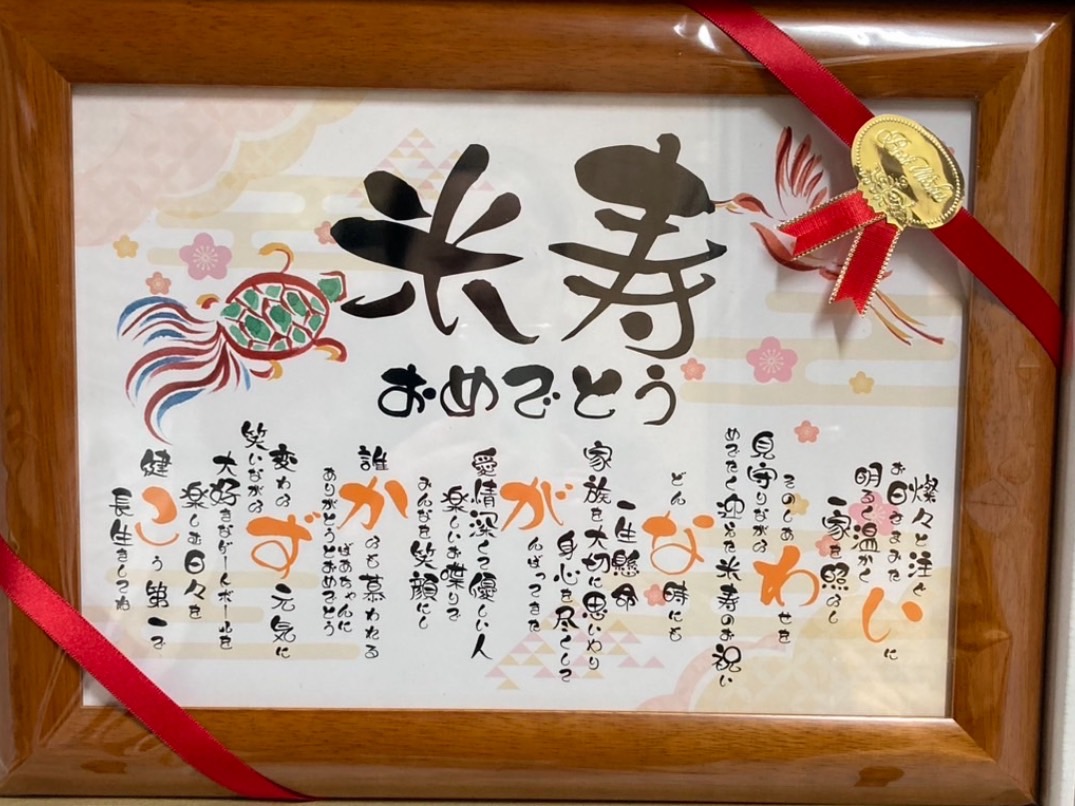 米寿
おめでとう
燦々と注ぐ
お日さまみたいに
明るく温かく
一家を照らし
そのしあわせを
見守りながら
めでたく迎えた米寿のお祝い
どんな時にも
一生懸命
家族を大切に思いやり
身心を尽くして
がんばってきた
愛情深くて優しい人
楽しいお喋りで
みんなを笑顔にし
誰からも慕われる
ばあちゃんに
ありがとうとおめでとう
変わらず元気に
笑いながら
大好きなゲートボールを
楽しむ日々を
健こう第一で
長生きしてね
Best Wishes